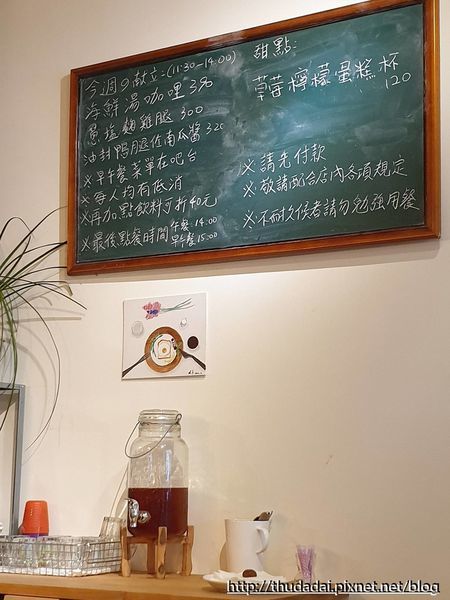 今週の献立:(11:30-14:00)
海鮮湯咖哩 3%
蔥塩麴雞腿 300
油封鴨腿佐南瓜醬 320
※早午餐菜單在吧台
※每人均有低消
※再加點飲料可折40元
※最後點餐時間 午餐 14:00
早午餐 15:00
甜點:
草莓檸檬蛋糕杯
120
※請先付款
※敬請配合店內各項規定
※不耐久候者請勿勉強用餐
http://thudadai.pixnet.net/blog